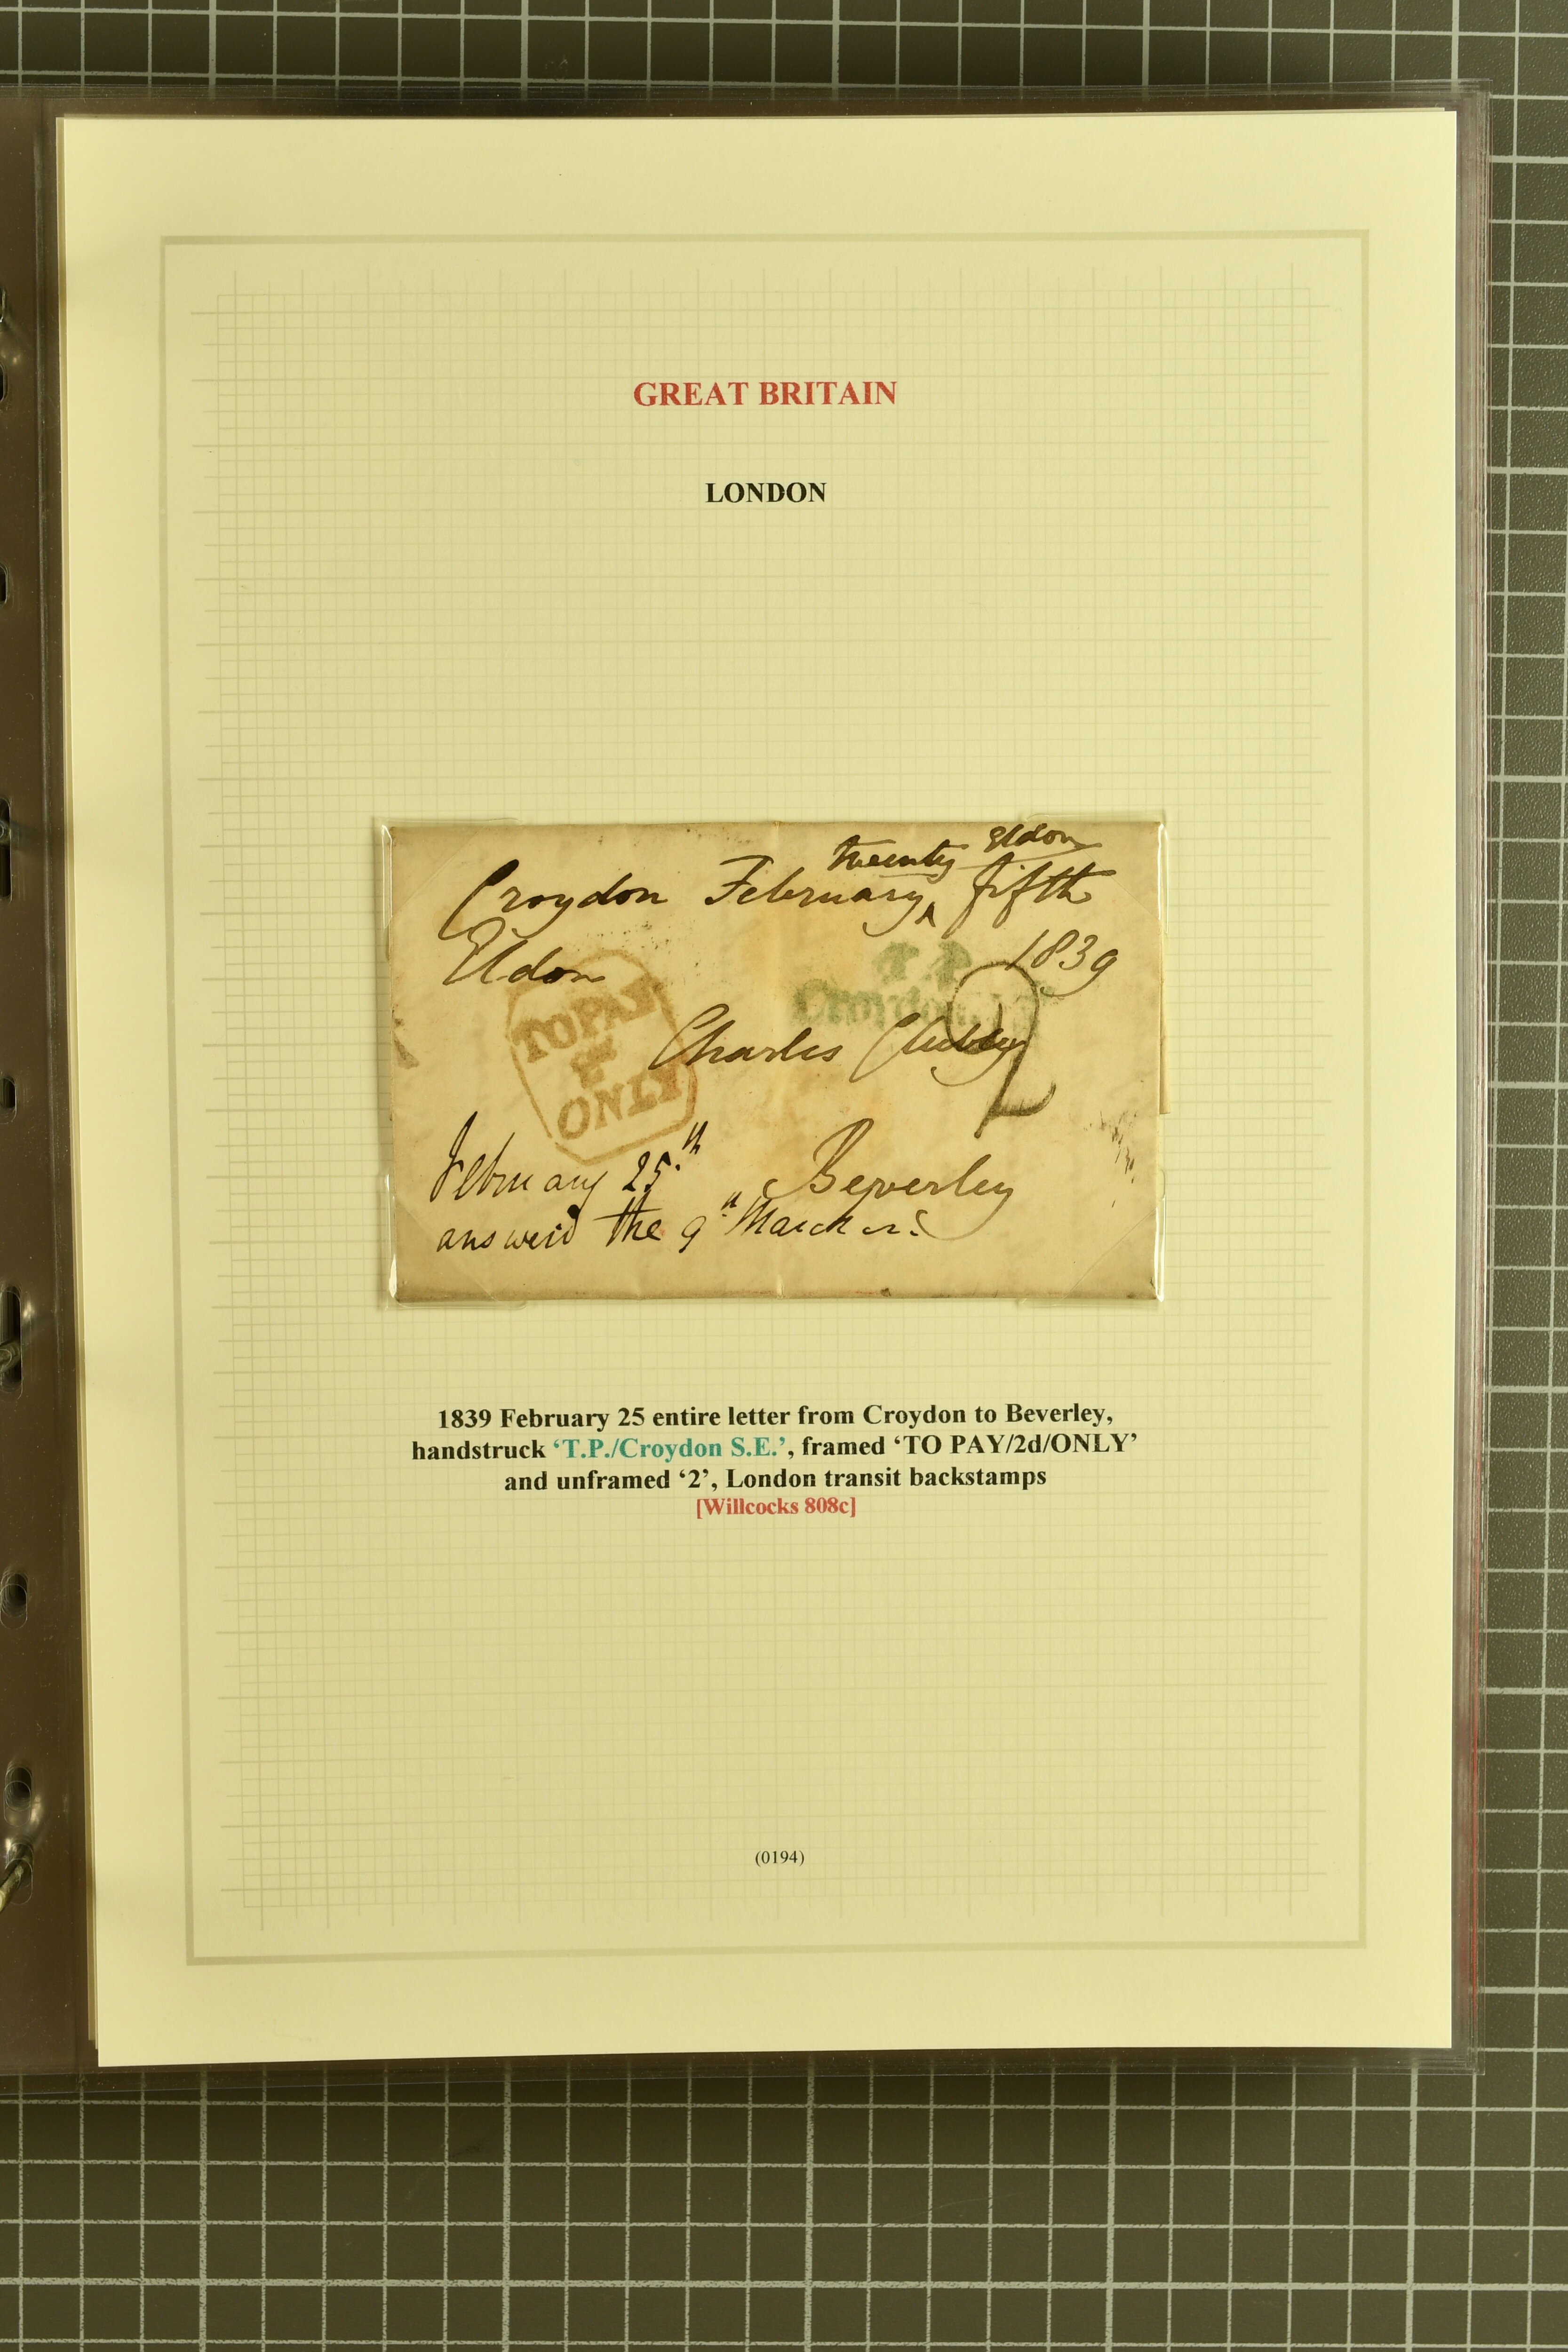 GREAT BRITAIN
LONDON
twenty Eldon
Croydon February ‸ fifth
Eldon 1839
T.P
Croydon
TO PAY
2d
ONLY
2
Charles
Beverley
February 25.th
answerd the 9th March
1839 February 25 entire letter from Croydon to Beverley,
handstruck ‘T.P./Croydon S.E.’, framed ‘TO PAY/2d/ONLY’
and unframed ‘2’, London transit backstamps
[Willcocks 808c]
(0194)